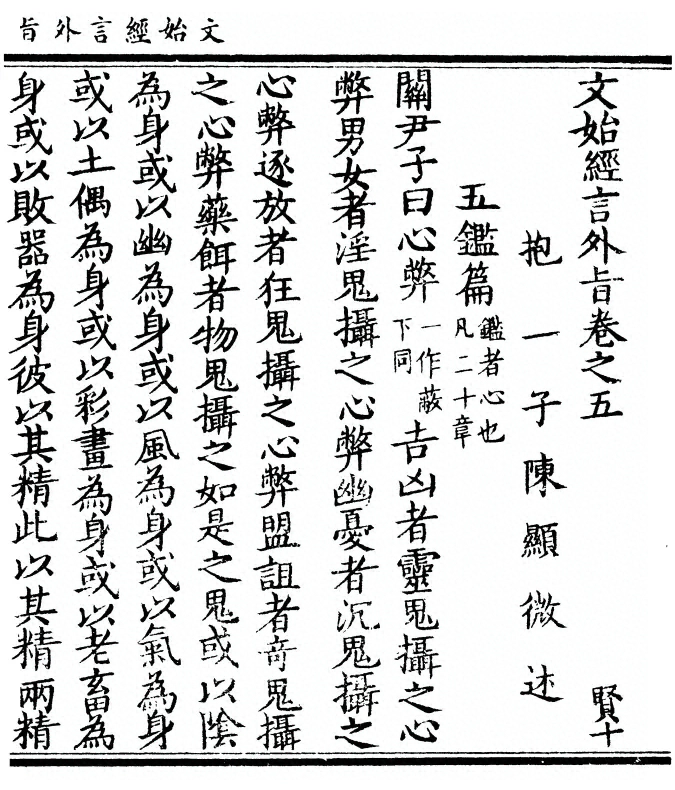 文始經言外旨
文始經言外旨卷之五
賢十
抱一子陳顯微述
五鑑篇
鑑者心也
凡二十章
關尹子曰心弊一作蔽下同吉凶者靈鬼攝之心
弊男女者淫鬼攝之心弊幽憂者沉鬼攝之
心弊逐放者狂鬼攝之心弊盟詛者奇鬼攝
之心弊藥餌者物鬼攝之如是之鬼或以陰
為身或以幽為身或以風為身或以氣為身
或以土偶為身或以彩畫為身或以老畜為
身或以敗器為身彼以其精此以其精兩精